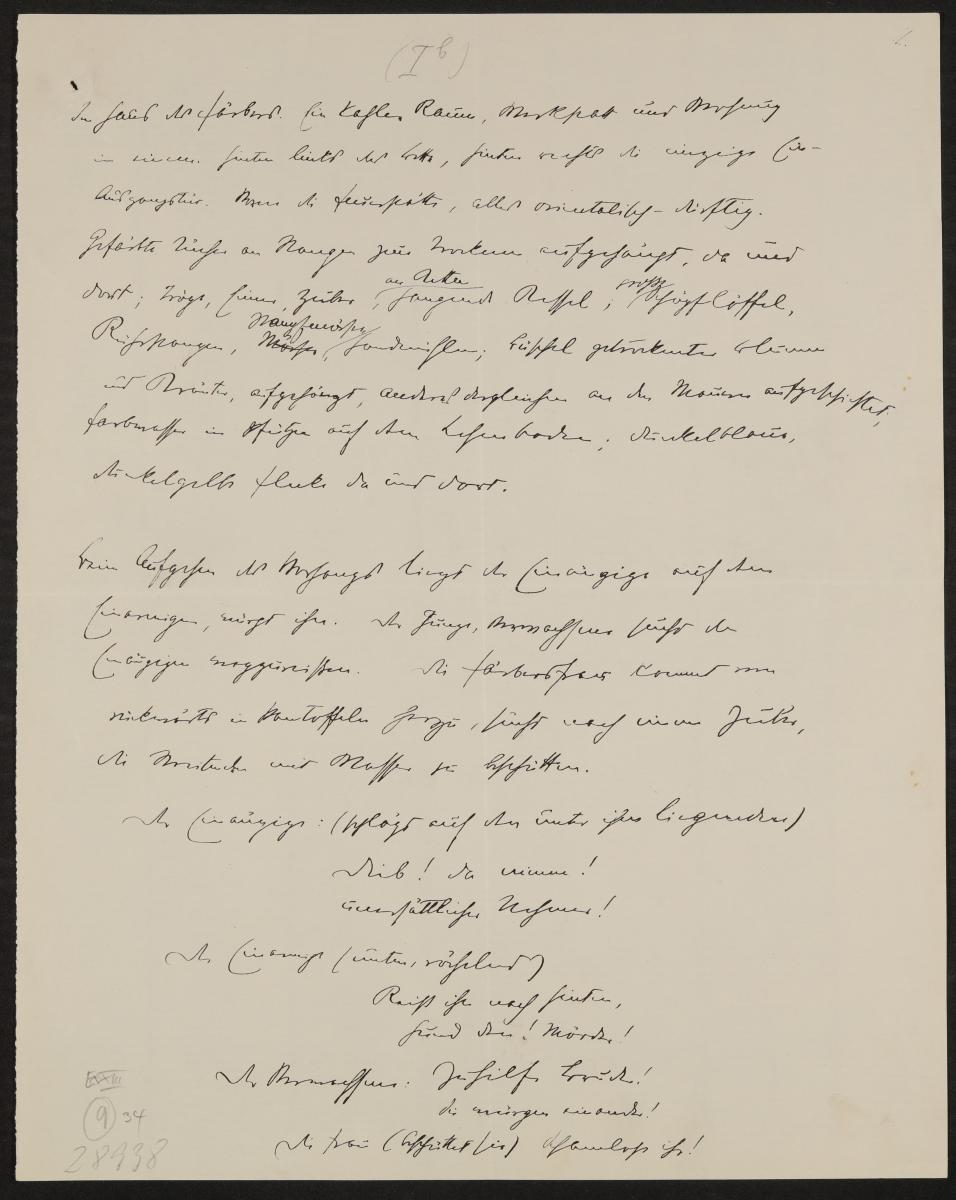 (I b)
1.
Im Haus des Färbers. Ein kahler Raum, Werkstatt und Wohnung
in einem. Hinten links das Bette, hinten rechts die einzige Ein-
Ausgangstür. Vorne die Feuerstätte, alles orientalisch-dürftig.
Gefärbte Tücher an Stangen zum Trocknen aufgehängt, da und
an Ketten große
dort; Tröge, Eimer, Zuber, hängende Kessel, Schöpflöffel,
Stampfmörser
Rührstangen, Mörser, Handmühlen; Büschel getrockneter Blumen
und Kräuter, aufgehängt, anderes dergleichen an den Mauern aufgeschichtet,
Farbmasse in Pfützen auf dem Lehmboden; dunkelblaue,
dunkelgelbe Flecke da und dort.
Beim Aufgehen des Vorhangs liegt der Einäugige auf dem
Einarmigen, würgt ihn. Der Junge, Verwachsene sucht den
Einäugigen wegzureißen. Die Färbersfrau kommt von
rückwärts in Pantoffeln herzu, sucht nach einem Zuber,
die Streitenden mit Wasser zu beschütten.
Der Einäugige: (schlägt auf den unter ihm liegenden)
Dieb! Da nimm!
unersättlicher Nehmer!
Der Einarmige (unten, röchelnd)
Reiß ihn nach hinten,
Hund den! Mörder!
Der Verwachsene: Zuhilfe Bruder!
die würgen einander!
Die Frau (beschüttet sie) Schamlose ihr!
XXIII
9 34
28938